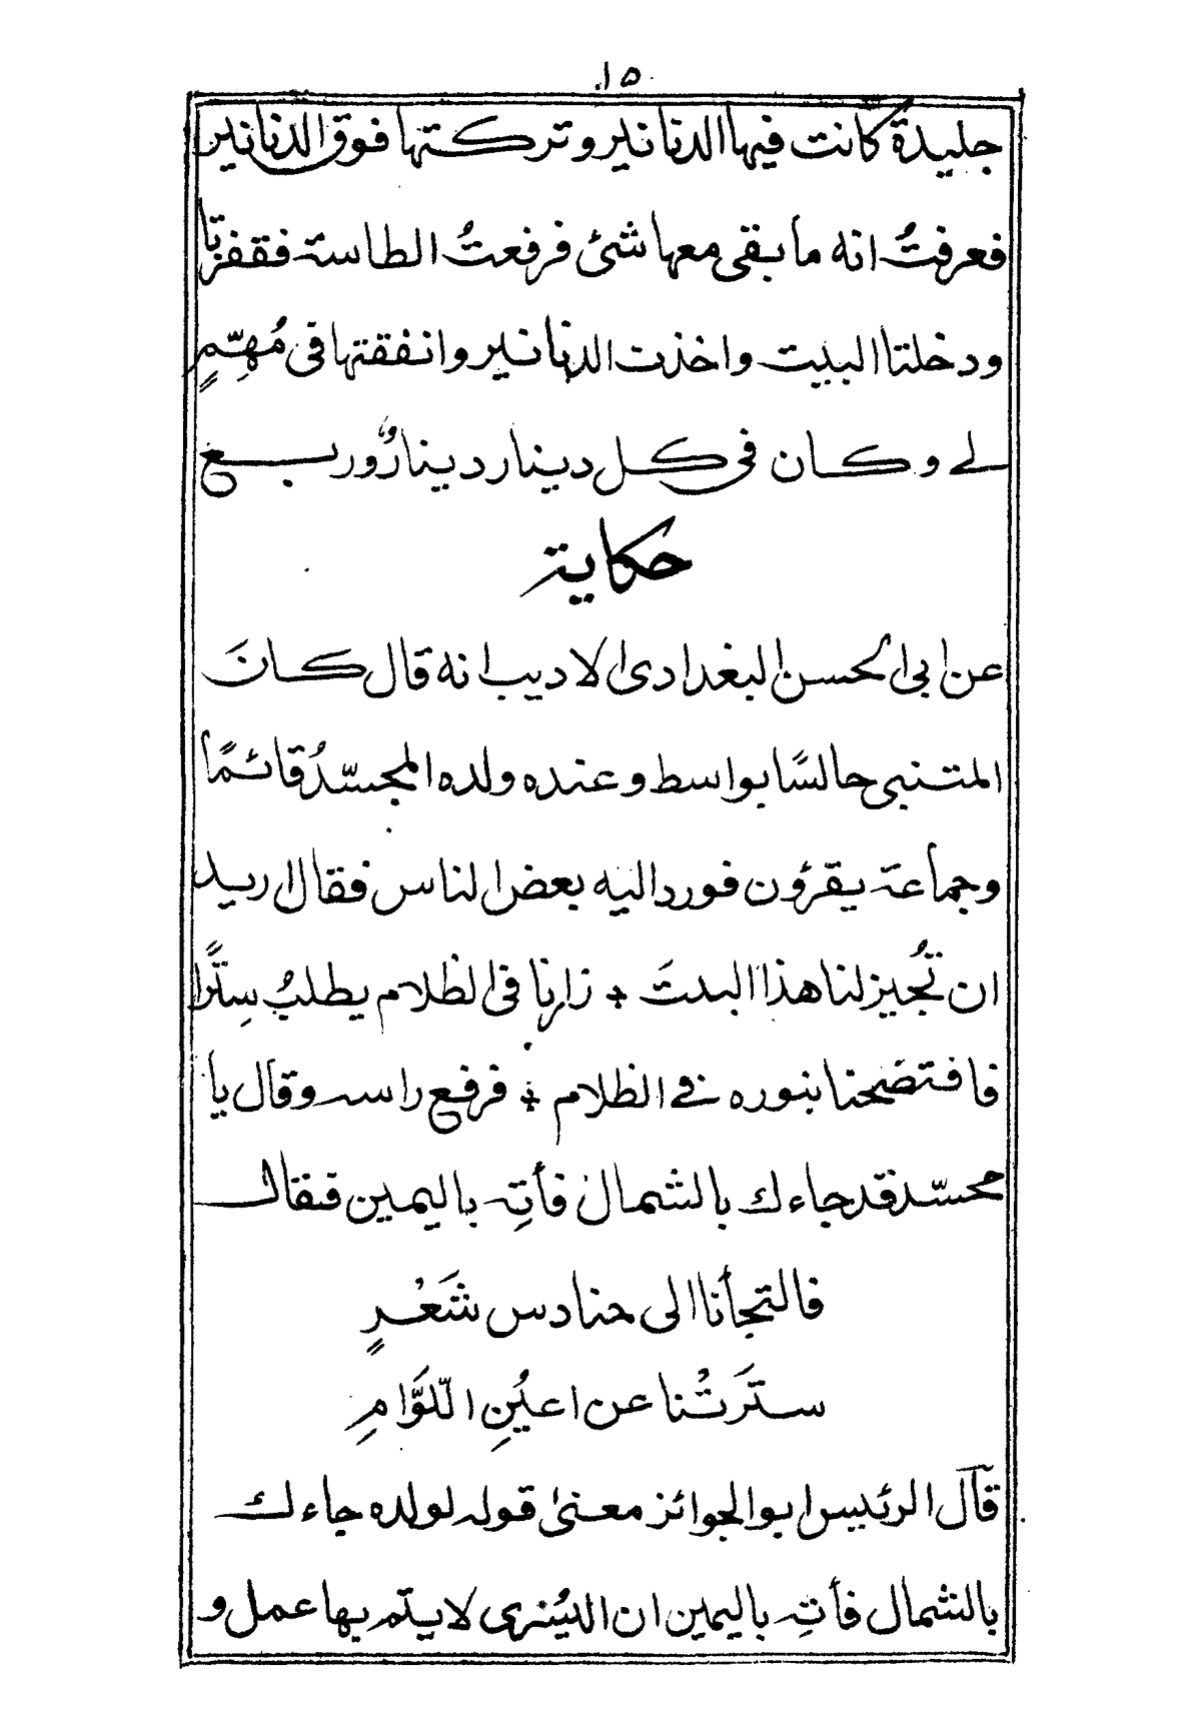 ١٥
جليدة كانت فيها الدنانير وتركتها فوق الدنانير
فعرفتُ انه ما بقى معها شئ فرفعتُ الطاسة فقفزتا
ودخلتا البيت واخذت الدنانير وانفقتها فى مُهِمّمٍ
لے وكان فى كل دينار دينارٌ وربع
حكاية
عن ابى الحسن البغدادى الاديب انه قال كانَ
المتنبى جالسًا بواسط وعنده ولده المحسّدُ قائمًا
وجماعة يقرؤن فورد اليه بعض الناس فقال اريد
ان تُجيزَ لنا هذا البيتَ ٭ زارنا فى الظلام يطلبُ سِتْرًا
فافتضحنا بنوره فے الظلام ٭ فرفع راسه وقال يا
محسّد قد جاءك بالشمال فأتِه باليمين فقال
فالتجأنا الى حنادس شَعْرٍ
ستَرَتْنا عن اعيُنِ اللّوَّامِ
قال الرئيس ابو الجوائز معنى قوله لولده جاءك
بالشمال فأتِه باليمين ان اليُسْرى لا يتم بها عمل و